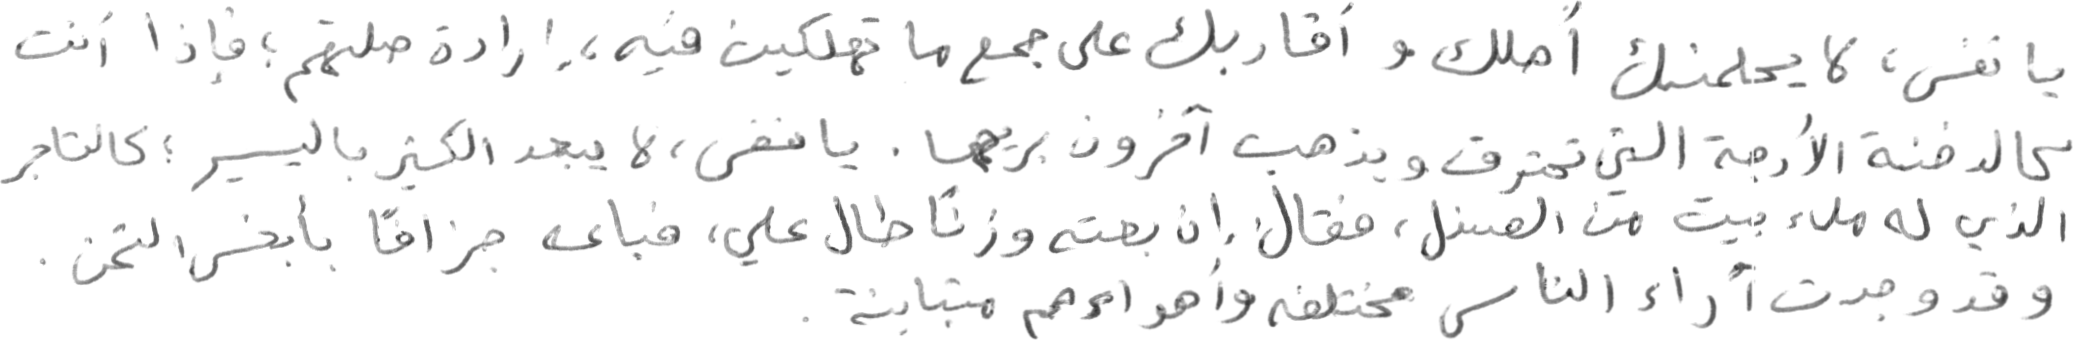 يا نفس، لا يحلمنك أهلك و أقاربك على جمع ما تهلكين فيه، إرادة صلتهم؛ فإذا أنت
كالدخنة الأرجة التي تحترق ويذهب آخرون بريحها. يا نفس، لا يبعد الكثير باليسير؛ كالتاجر
الذي له ملء بيت من الصندل، فقال: إن بعته وزنًا طال علي، فباعه جزافًا بأبخس الثمن.
وقد وجدت آراء الناس مختلفة وأهواءهم متباينة.